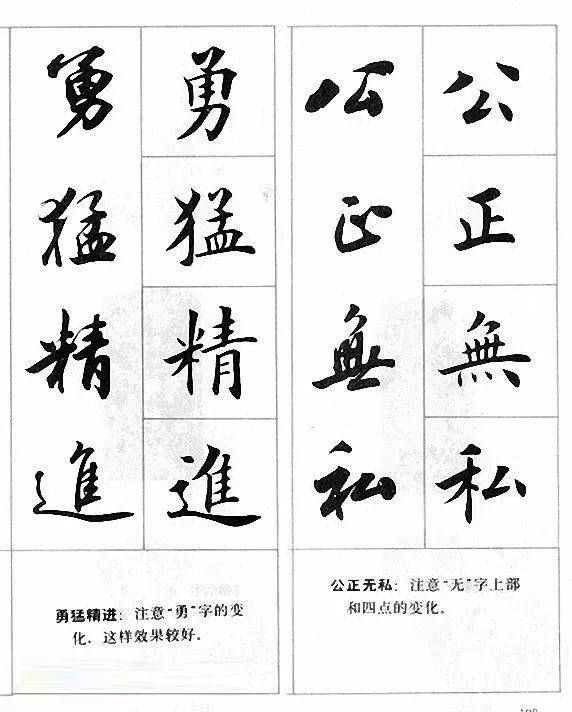 公正無私
公正無私
公正无私：注意“无”字上部
和四点的变化。
勇猛精進
勇猛精進
勇猛精进：注意“勇”字的变
化，这样效果较好。